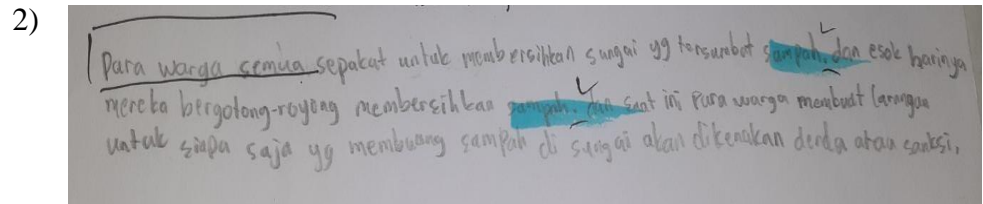 2)
Para warga semua sepakat untuk membersihkan sungai yg tersumbat sampah. dan esok harinya
mereka bergotong-royong membersihkan sampah. dan saat ini para warga membuat larangan
untuk siapa saja yg membuang sampah di sungai akan dikenakan denda atau sanksi,